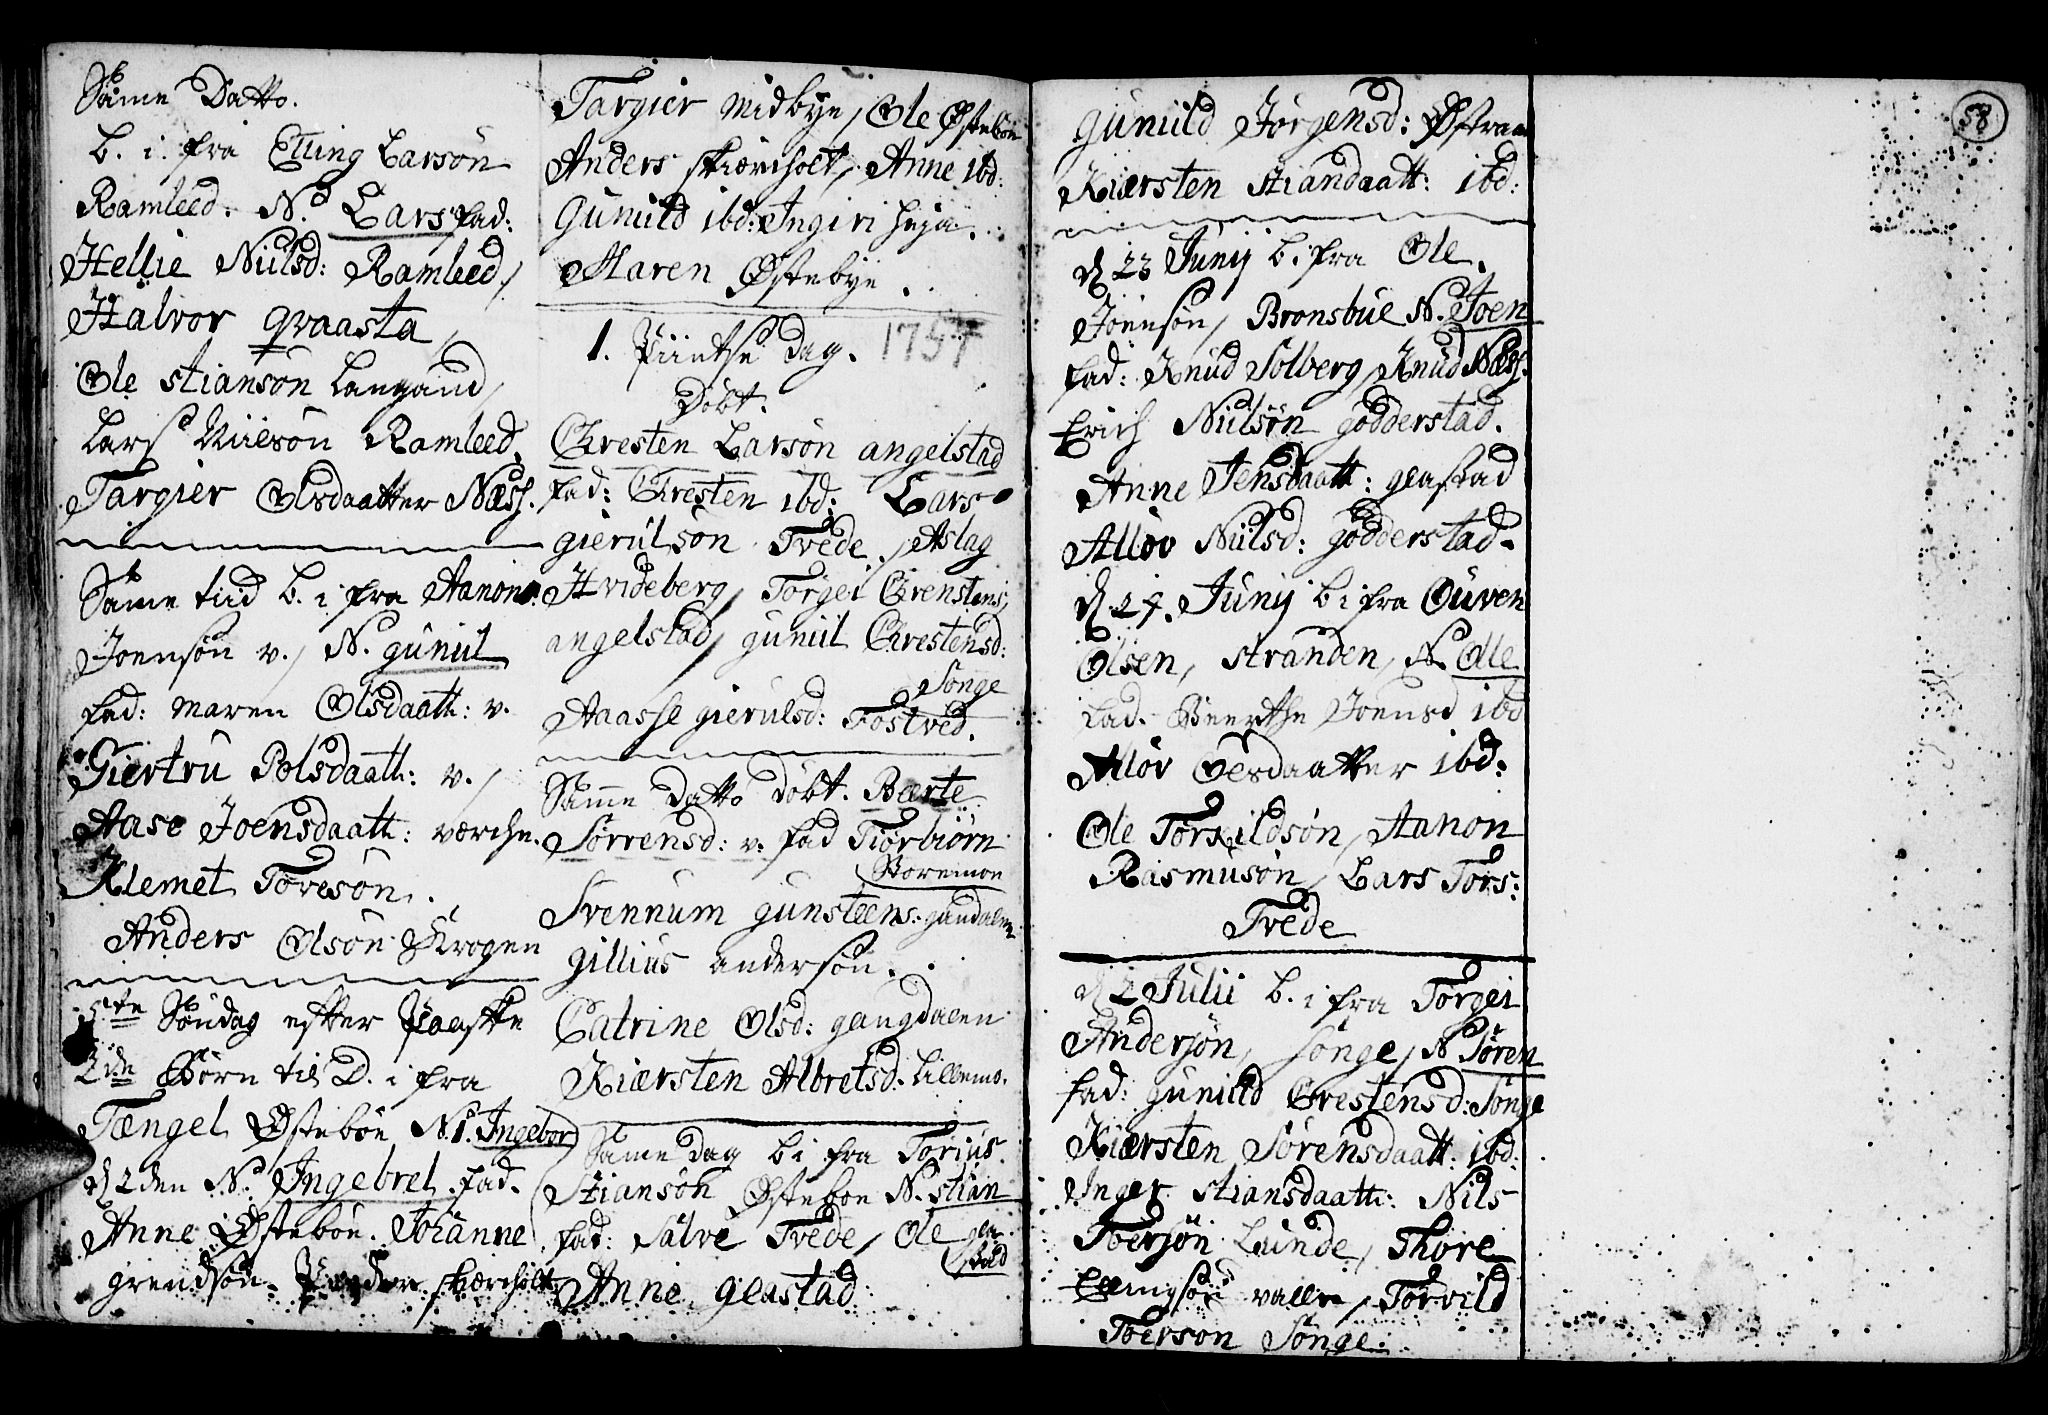 Same Datto.
B. i fra Elling Larsøn
Ramleed. N. Lars fad:
Hellie Niilsd: Ramleed,
Halvor qvaasta,
Ole Stiansøn Langand,
Lars Niilsøn Ramleed.
Targier Olsdaatter Næss.
Same tiid B. i fra Aanon
Joensøn v., N. guniil
fad: maren Olsdaatt: v.
Giertru Polsdaatt: v.,
Aase Joensdaatt:
Klemet Toresøn.
Anders Olsøn Krogen
5te Søndag efter Paaske
2de Børn til D. i fra
Tængel Østebøe N. 1. Ingebor
d 2den N. Ingebret fad.
Anne Østebøe. Johanne
grendsøn.
Targier midbye, Ole Østebøe
Anders skiæreholt, Anne ibd:
Guniild ibd: Ingiri heja.
Maren Østebye.
1. Piintse dag. 1757
Døbt.
Chresten Larsøn angelstad
fad: Chresten ibd: Lars
gierulsøn Tvede, Aslag
Hvideberg, Torgei Chrenstens,
angelstad, guniil Chrestensd:
Songe
Aasse gierulsd: Fostved.
Samme Datto Døbt. Bærte
Sørrensd: v. fad Tiorbiørn
Boremoe
Svennum gunsteens: gundalen
gillius andersøn.
Catrine Olsd: gangdalen
Kiærsten Albretsd. Lillemo.
Same dag b i fra Torius.
Stiansøn Østeboe N. stian
fad: Salve Tvede, Ole gla
stad
Anne glastad
58
guniild Jørgensd: Østraa
Kiærsten Stiandaatt: ibd:
d 23 Junij b. i fra Ole.
Joensøn, Bronsbue N. Joen
fad: Knud Solberg, Knud Næss.
Erich Niilsøn godderstad.
Anne Jensdaatt: glastad
Alløv Niilsd: godderstad.
d. 29. Junij b i fra Ouven
Olsen, stranden, N. Olle
fad. Beerthe Joensd ibd
Alløv Olesdaatter ibd:
Ole Torkildsøn, Aanon
Rasmusøn, Lars Tors:
Tvede
d 2 Julii b. i fra Torgei
Andersøn, Songe, N Søren
fad: guniild Chrestensd: Songe
Kiærsten Sørensdaatt: ibd:
Inger stiansdaatt: Nils
Toersøn Lunde, Thore
Ellingsøn valle, Torvild
Toerson Songe.